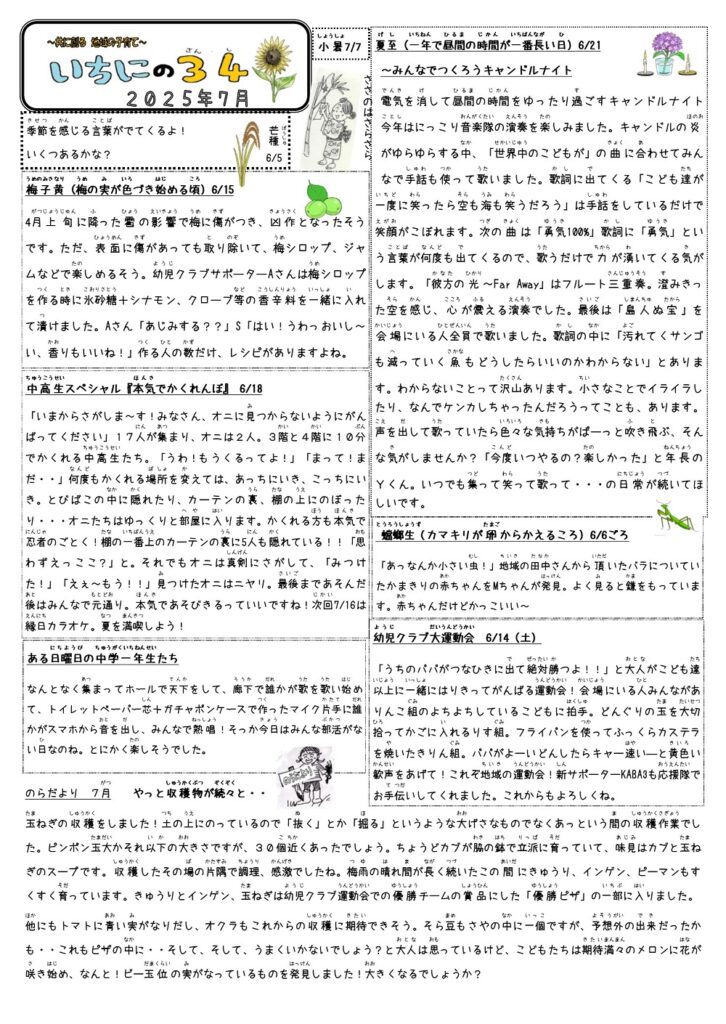 ～共に創る 地域の子育て～
いちにの３４
２０２５年７月
小暑7/7
季節を感じる言葉がでてくるよ！
いくつあるかな？
芒種
6/5
梅子黄（梅の実が色づき始める頃）6/15
4月上旬に降った雹の影響で梅に傷がつき、凶作となったそう
です。ただ、表面に傷があっても取り除いて、梅シロップ、ジャ
ムなどで楽しめるそう。幼児クラブサポーターAさんは梅シロップ
を作る時に氷砂糖＋シナモン、クローブ等の香辛料を一緒に入れ
て漬けました。Aさん「あじみする？？」S「はい！うわっおいし～
い、香りもいいね！」作る人の数だけ、レシピがありますよね。
中高生スペシャル『本気でかくれんぼ』 6/18
「いまからさがしま～す！みなさん、オニに見つからないようにがん
ばってください」１７人が集まり、オニは２人。３階と４階に１０分
でかくれる中高生たち。「うわ！もうくるってよ！」「まって！ま
だ・・」何度もかくれる場所を変えては、あっちにいき、こっちにい
き。とびばこの中に隠れたり、カーテンの裏、棚の上にのぼった
り・・・オニたちはゆっくりと部屋に入ります。かくれる方も本気で
忍者のごとく！棚の一番上のカーテンの裏に5人も隠れている！！「思
わずえっここ？」と。それでもオニは真剣にさがして、「みつけ
た！」「えぇ～もう！！」見つけたオニはニヤリ。最後まであそんだ
後はみんなで元通り。本気であそびきるっていいですね！次回7/16は
縁日カラオケ。夏を満喫しよう！
ある日曜日の中学一年生たち
なんとなく集まってホールで天下をして、廊下で誰かが歌を歌い始め
て、トイレットペーパー芯＋ガチャポンケースで作ったマイク片手に誰
かがスマホから音を出し、みんなで熱唱！そっか今日はみんな部活がな
い日なのね。とにかく楽しそうでした。
夏至（一年で昼間の時間が一番長い日）6/21
～みんなでつくろうキャンドルナイト
電気を消して昼間の時間をゆったり過ごすキャンドルナイト
今年はにっこり音楽隊の演奏を楽しみました。キャンドルの炎
がゆらゆらする中、「世界中のこどもが」の曲に合わせてみん
なで手話も使って歌いました。歌詞に出てくる「こども達が
一度に笑ったら空も海も笑うだろう」は手話をしているだけで
笑顔がこぼれます。次の曲は「勇気100%」歌詞に「勇気」とい
う言葉が何度も出てくるので、歌うだけで力が湧いてくる気が
します。「彼方の光～Far Away」はフルート三重奏。澄みきっ
た空を感じ、心が震える演奏でした。最後は「島人ぬ宝」を
会場にいる人全員で歌いました。歌詞の中に「汚れてくサンゴ
も減っていく魚もどうしたらいいのかわからない」とありま
す。わからないことって沢山あります。小さなことでイライラし
たり、なんでケンカしちゃったんだろうってことも、あります。
声を出して歌っていたら色々な気持ちがぱーっと吹き飛ぶ、そん
な気がしませんか？「今度いつやるの？楽しかった」と年長の
Yくん。いつでも集って笑って歌って・・・の日常が続いてほ
しいです。
蟷螂生（カマキリが卵からかえるころ）6/6ごろ
「あっなんか小さい虫！」地域の田中さんから頂いたバラについてい
たかまきりの赤ちゃんをMちゃんが発見。よく見ると鎌をもっていま
す。赤ちゃんだけどかっこいい～
幼児クラブ大運動会　6/14（土）
「うちのパパがつなひきに出て絶対勝つよ！！」と大人がこども達
以上に一緒にはりきってがんばる運動会！会場にいる人みんながあ
りんこ組のよちよちしているこどもに拍手。どんぐりの玉を大切
拾ってかごに入れるりす組。フライパンを使ってふっくらカステラ
を焼いたきりん組。パパがよーいどんしたらキャー速い―と黄色い
歓声をあげて！これぞ地域の運動会！新サポーターKABA3も応援隊で
お手伝いしてくれました。これからもよろしくね。
のらだより　７月　　やっと収穫物が続々と・・
玉ねぎの収穫をしました！土の上にのっているので「抜く」とか「掘る」というような大げさなものでなくあっという間の収穫作業でし
た。ピンポン玉大かそれ以下の大きさですが、３０個近くあったでしょう。ちょうどカブが脇の鉢で立派に育っていて、味見はカブと玉ね
ぎのスープです。収穫したその場の片隅で調理、感激でしたね。梅雨の晴れ間が長く続いたこの間にきゅうり、インゲン、ピーマンもす
くすく育っています。きゅうりとインゲン、玉ねぎは幼児クラブ運動会での優勝チームの賞品にした「優勝ピザ」の一部に入りました。
他にもトマトに青い実がなりだし、オクラもこれからの収穫に期待できそう。そら豆もさやの中に一個ですが、予想外の出来だったか
も・・これもピザの中に・・そして、そして、うまくいかないでしょう？と大人は思っているけど、こどもたちは期待満々のメロンに花が
咲き始め、なんと！ビー玉位の実がなっているものを発見しました！大きくなるでしょうか？